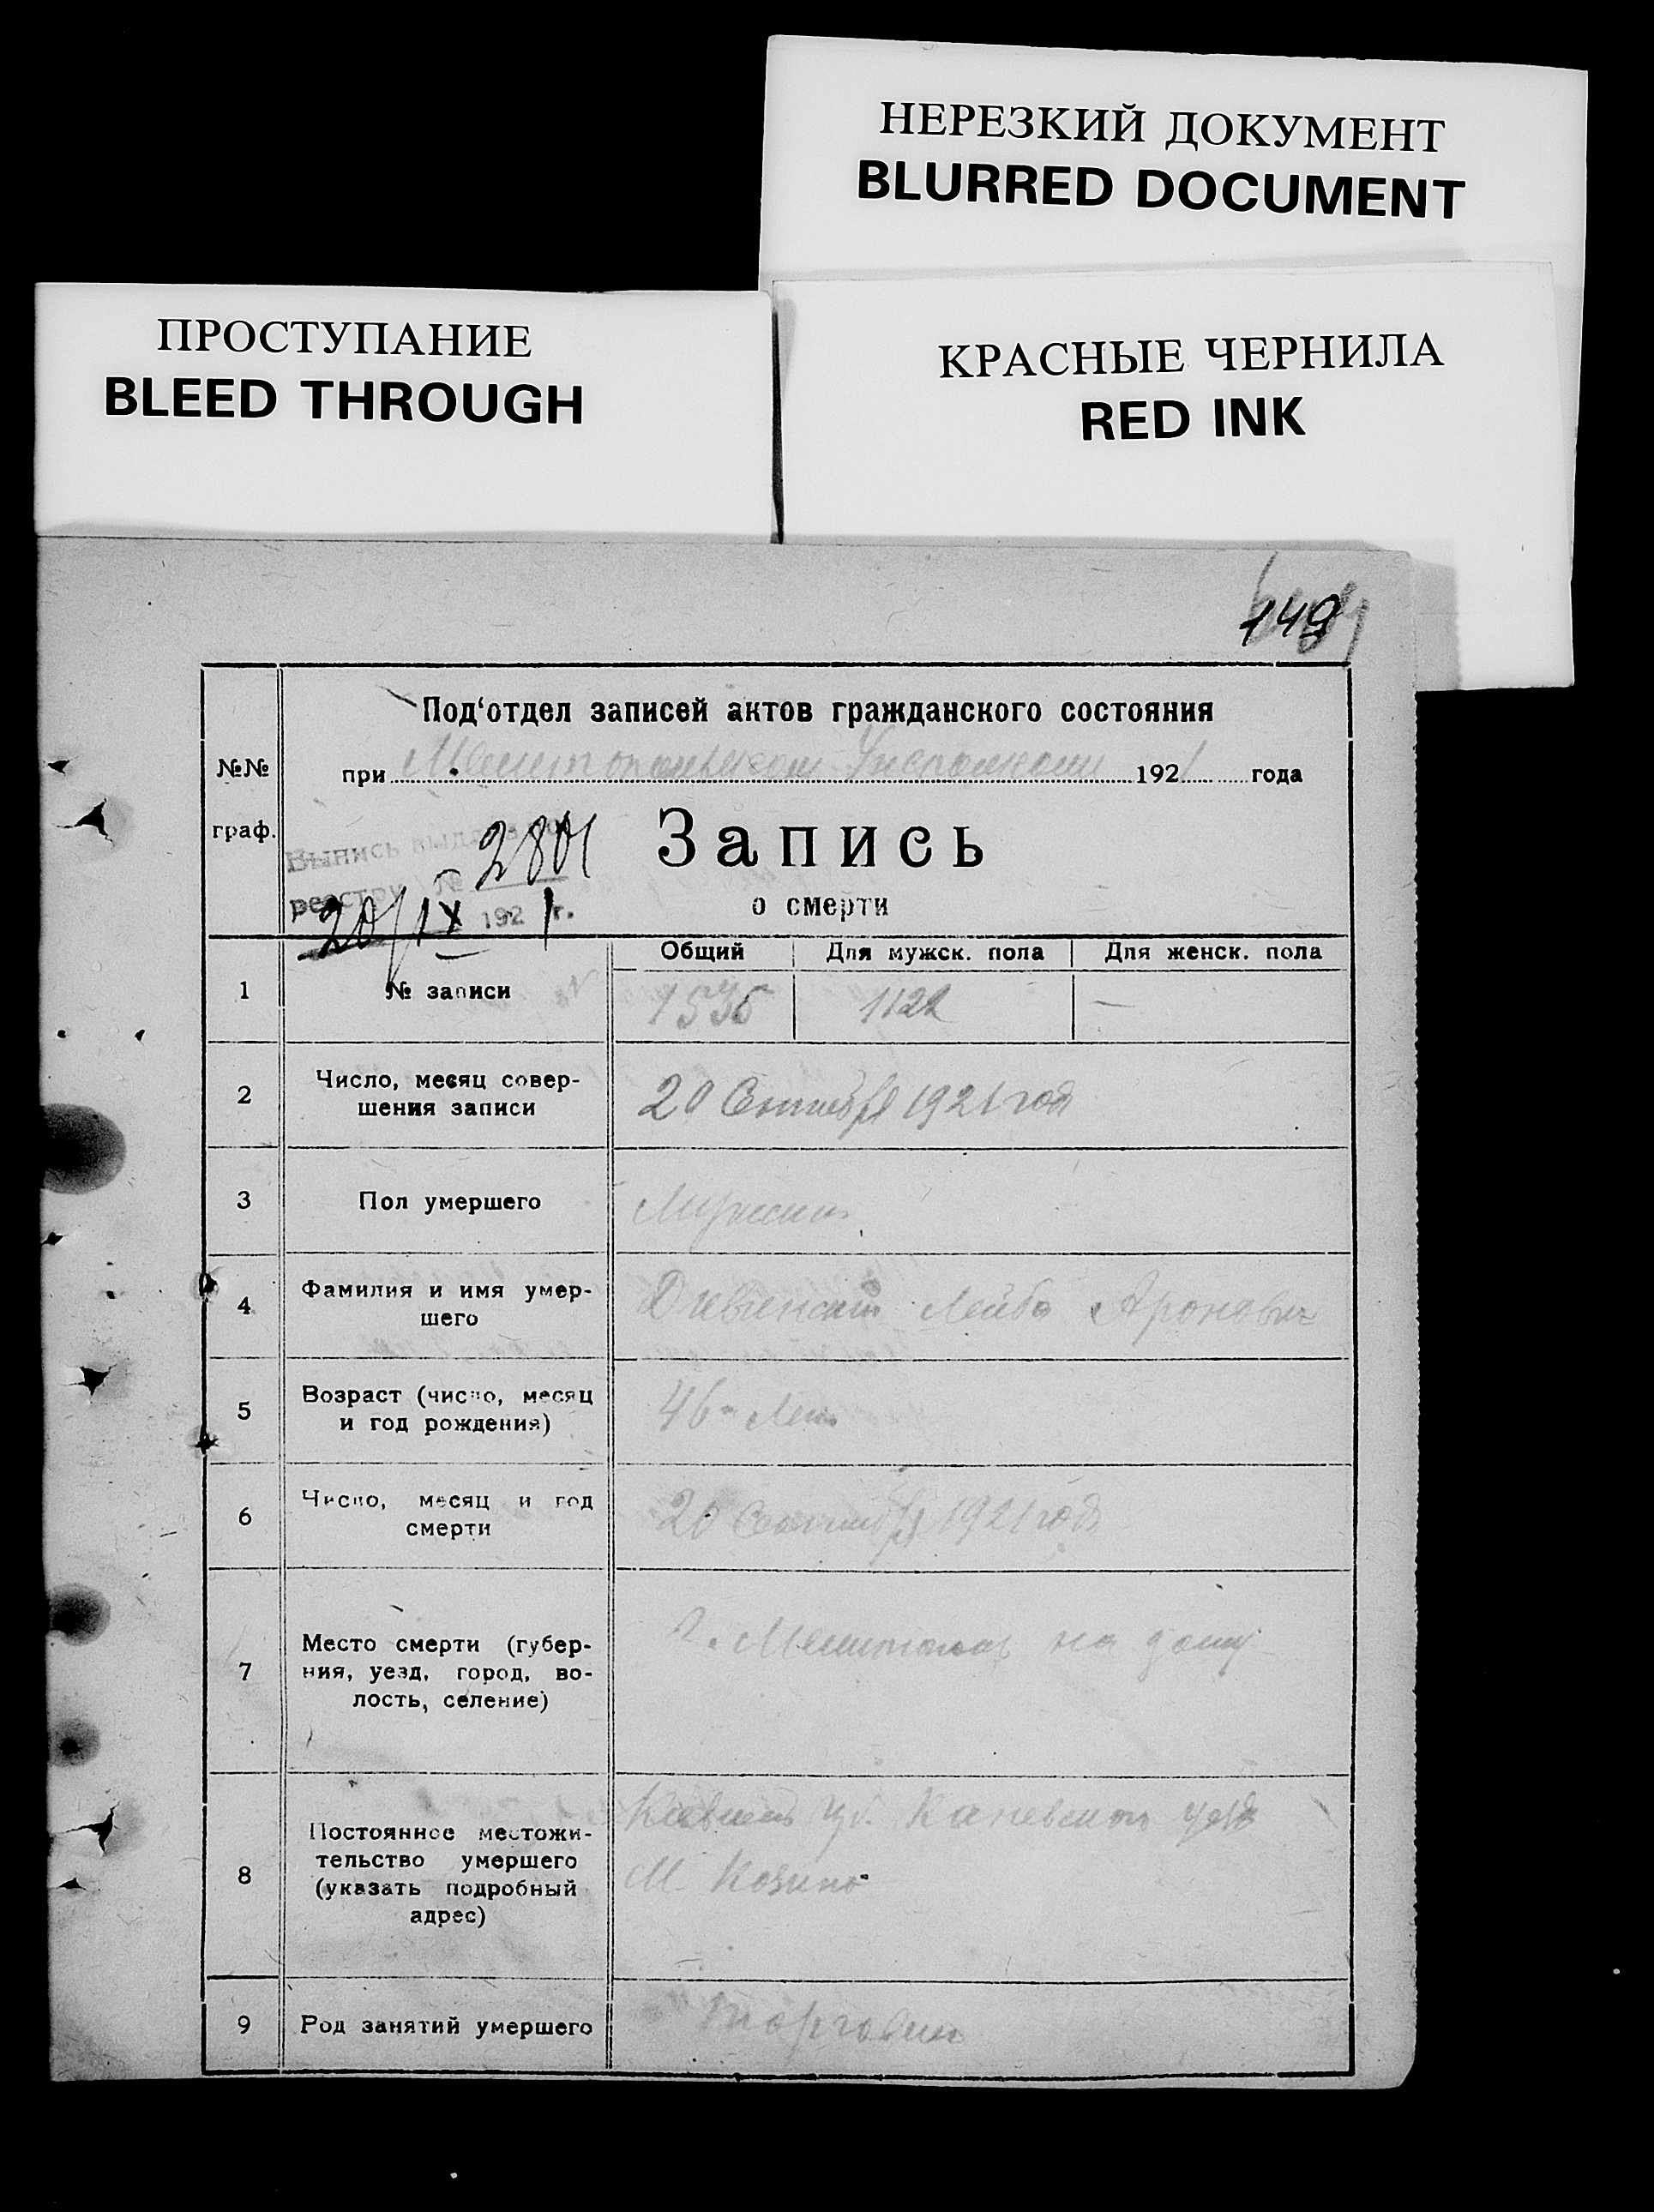 НЕРЕЗКИЙ ДОКУМЕНТ
BLURRED DOCUMENT
ПРОСТУПАНИЕ
BLEED THROUGH
КРАСНЫЕ ЧЕРНИЛА
RED INK
149
№№
граф.
Под‘отдел записей актов гражданского состояния
при 1921 года
Выпись выдана
реестру № 2801
20/IX 1921 г.
Запись
о смерти
Общий Для мужск. пола Для женск. пола
1 № записи 1122 —
2 Число, месяц совер-
шения записи
20 Сентября 1921 год
3 Пол умершего
4 Фамилия и имя умер-
шего
Лейба Аронович
5 Возраст (число, месяц
и год рождения)
46 лет
6 Число, месяц и год
смерти
20 Сентября 1921 год
7 Место смерти (губер-
ния, уезд, город, во-
лость, селение)
г. Мелитополь на дому
8 Постоянное местожи-
тельство умершего
(указать подробный
адрес)
Каневской уезд
М.
9 Род занятий умершего